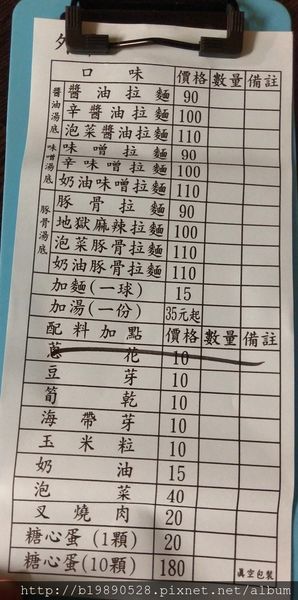 口味 價格 數量 備註
醬油湯底
醬油拉麵 90
辛醬油拉麵 100
泡菜醬油拉麵 110
味噌湯底
味噌拉麵 90
辛味噌拉麵 100
奶油味噌拉麵 110
豚骨湯底
豚骨拉麵 90
地獄麻辣拉麵 100
泡菜豚骨拉麵 110
奶油豚骨拉麵 110
加麵(一球) 15
加湯(一份) 35元起
配料加點 價格 數量 備註
蔥花 10
豆芽 10
筍乾 10
海帶芽 10
玉米粒 10
奶油 15
泡菜 40
叉燒肉 20
糖心蛋(1顆) 20
糖心蛋(10顆) 180 真空包裝
http://b19890528.pixnet.net/album/